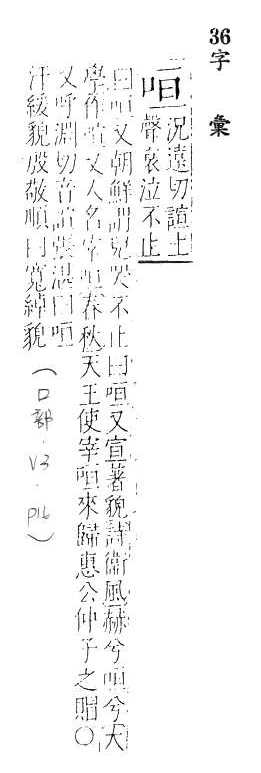 36字彙
咺
況遠切諠上
聲哀泣不止
曰咺又朝鮮謂兒哭不止曰咺又宣著貌詩衛風赫兮咺兮大
學作喧又人名宰咺春秋天王使宰咺來歸惠公仲子之賵○
又呼淵切音諠張湛曰咺
汙緩貌殷敬順曰寬綽貌
(口部．V3．P16)